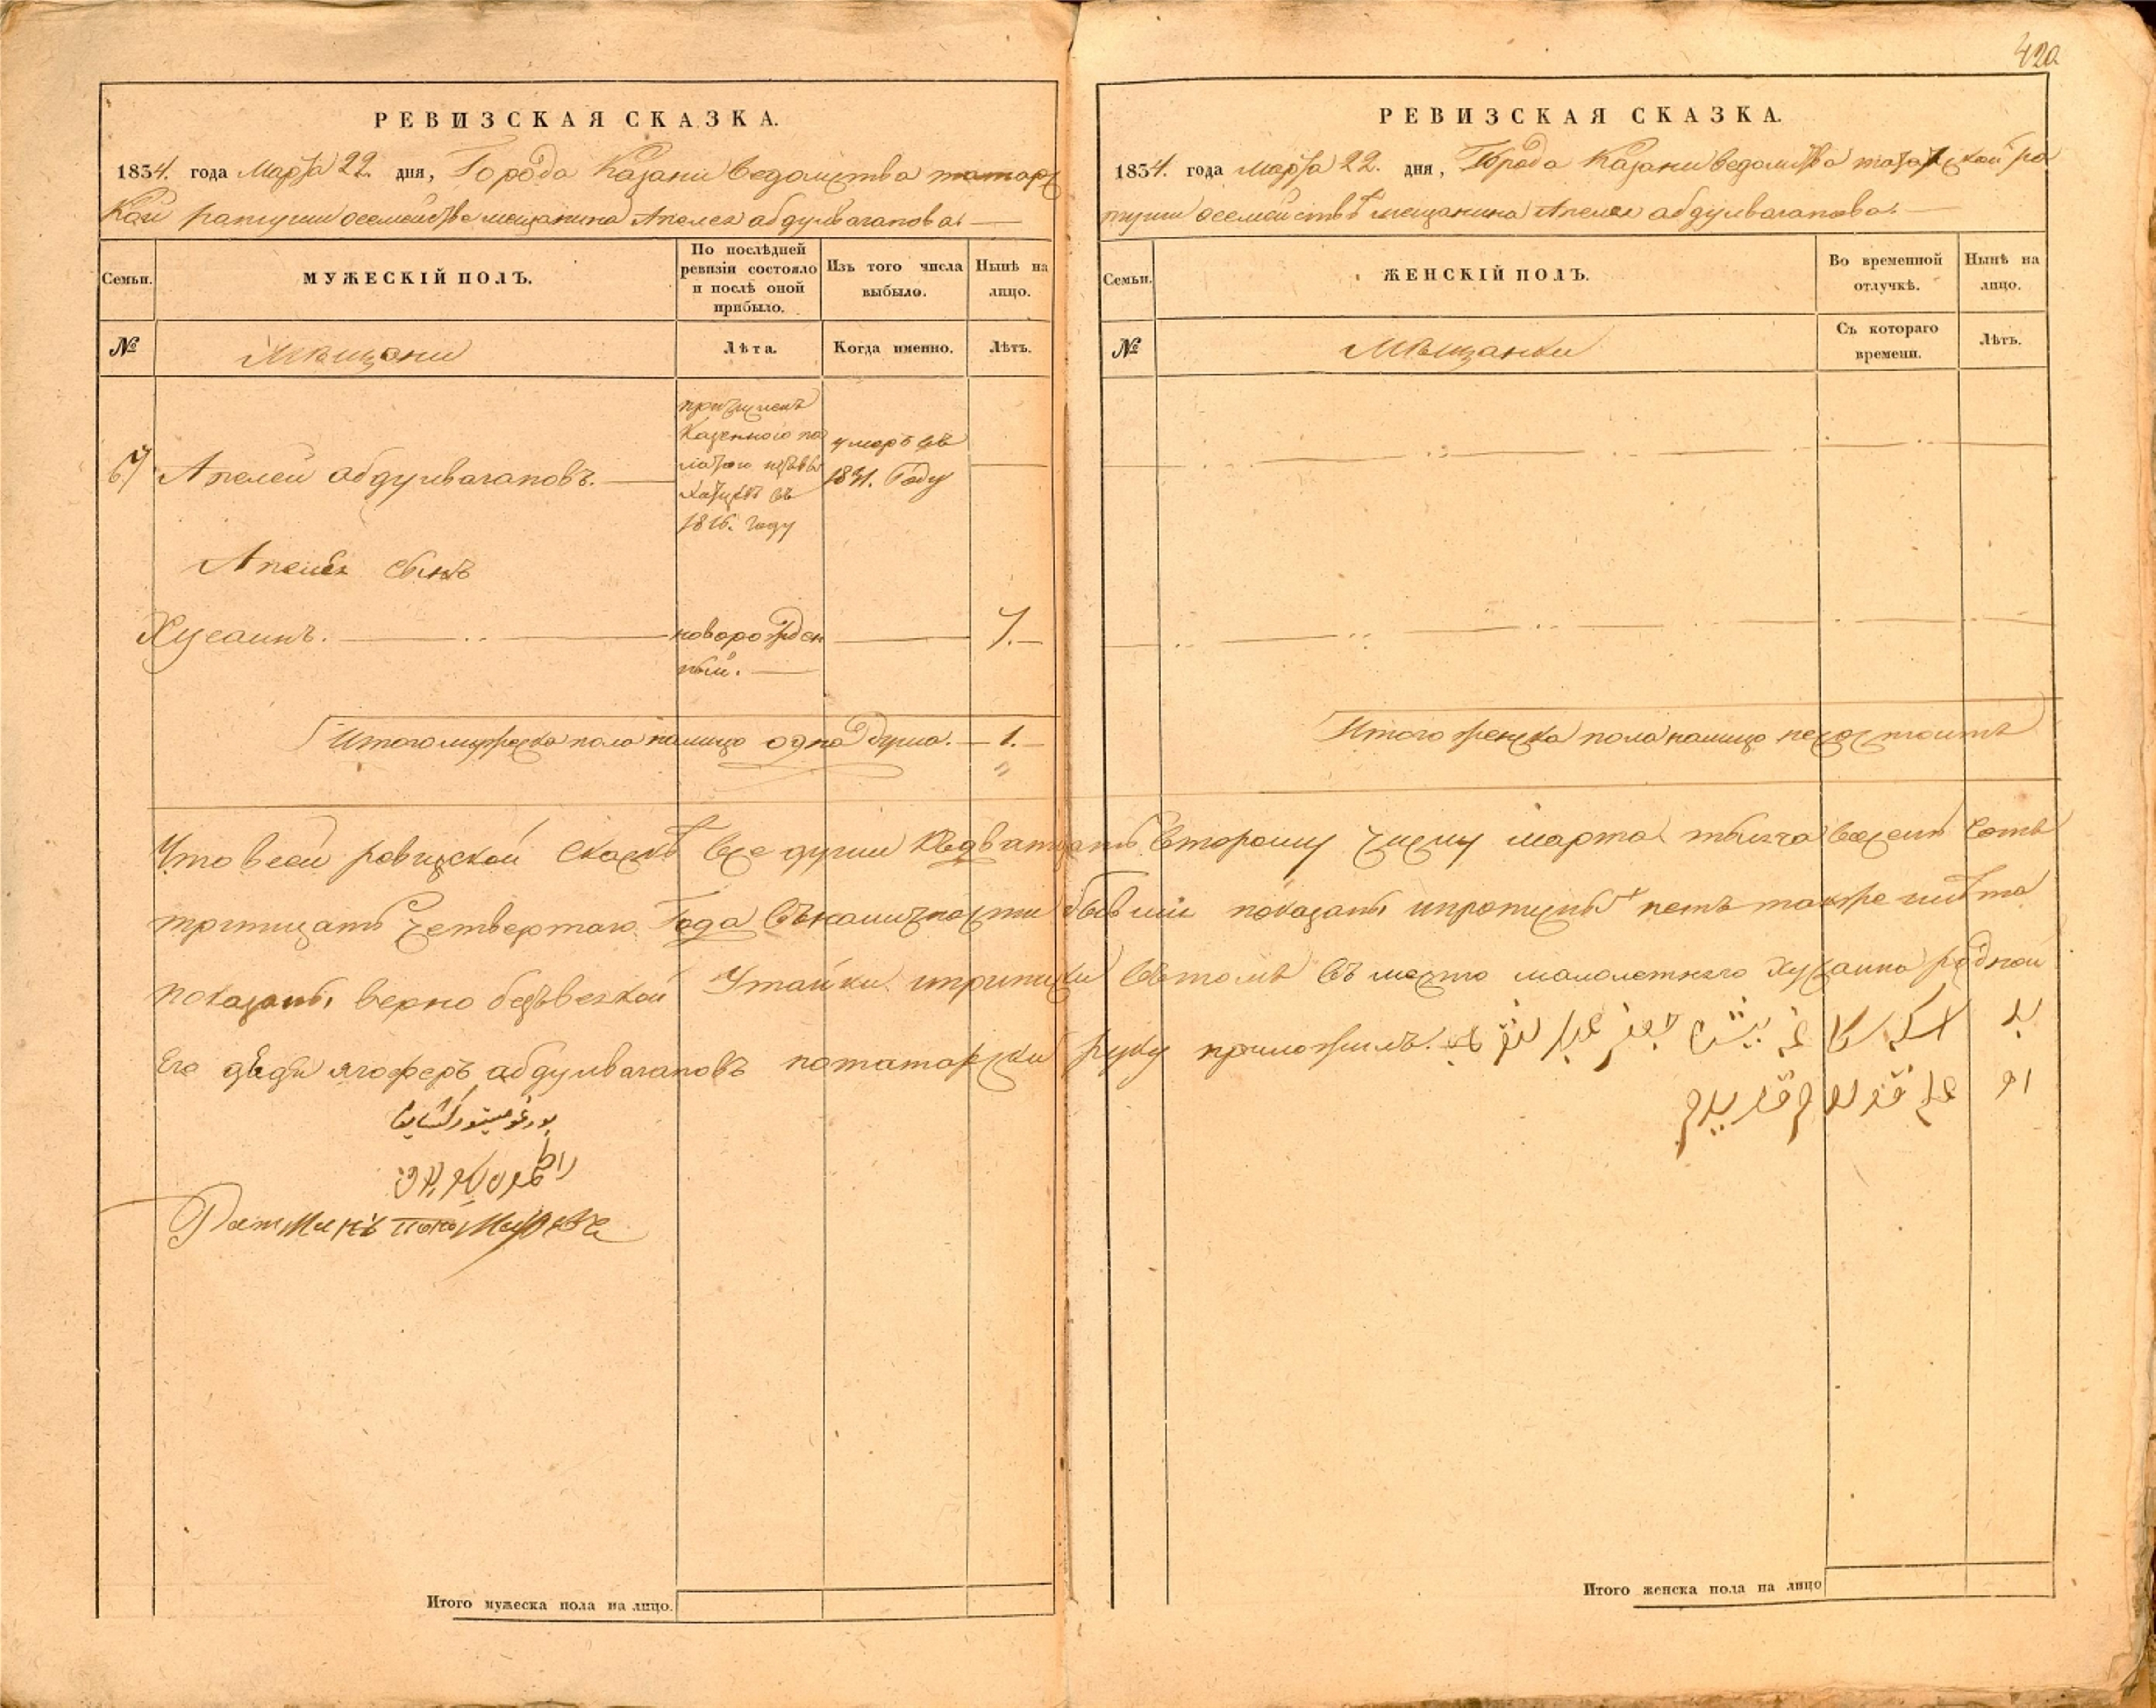 420
РЕВИЗСКАЯ СКАЗКА.
1834. года Марта 22. дня, Города Казани ведомства татарс
кой ратуши осемействе мещанина Апелея абдулвагапова.
Семьи.
МУЖЕСКІЙ ПОЛЪ.
По послѣдней
ревизіи состояло
и послѣ оной
прибыло.
Изъ того числа
выбыло.
Нынѣ на
лицо.
№
Мѣщани
Лѣта.
Когда именно.
Лѣтъ.
67
Апелей абдулвагаповъ.
причисленъ
Казенного па
латою
въ
1816. году
умеръ въ
1831. Году
Апелея сынъ
Хусаинъ.
новорожден
ный.
7.
Итого мужеска пола налицо одна душа. 1.
РЕВИЗСКАЯ СКАЗКА.
1834. года марта 22. дня, Города Казани ведомства татарской ра
туши осемействѣ мещанина Апелея абдулвагапова.
Семьи.
ЖЕНСКІЙ ПОЛЪ.
Во временной
отлучкѣ.
Нынѣ на
лицо.
№
Мѣщанки
Съ котораго
времени.
Лѣтъ.
Итого женска пола налицо несостоитъ
Что всей ревизской сказкѣ все души кдватцать второму числу марта тысяча восемь сотъ
тритцать четвертаго Года въналичности бывшіе показаны ипропущеныхъ нетъ также илѣта
показаны верно безъвсякой Утайки иприписки вътомъ въ место малолетняго Хусаина родной
Его дядя ягоферъ абдулвагаповъ потатарски руку приложилъ.
Ратманъ
Итого мужеска пола на лицо.
Итого женска пола на лицо